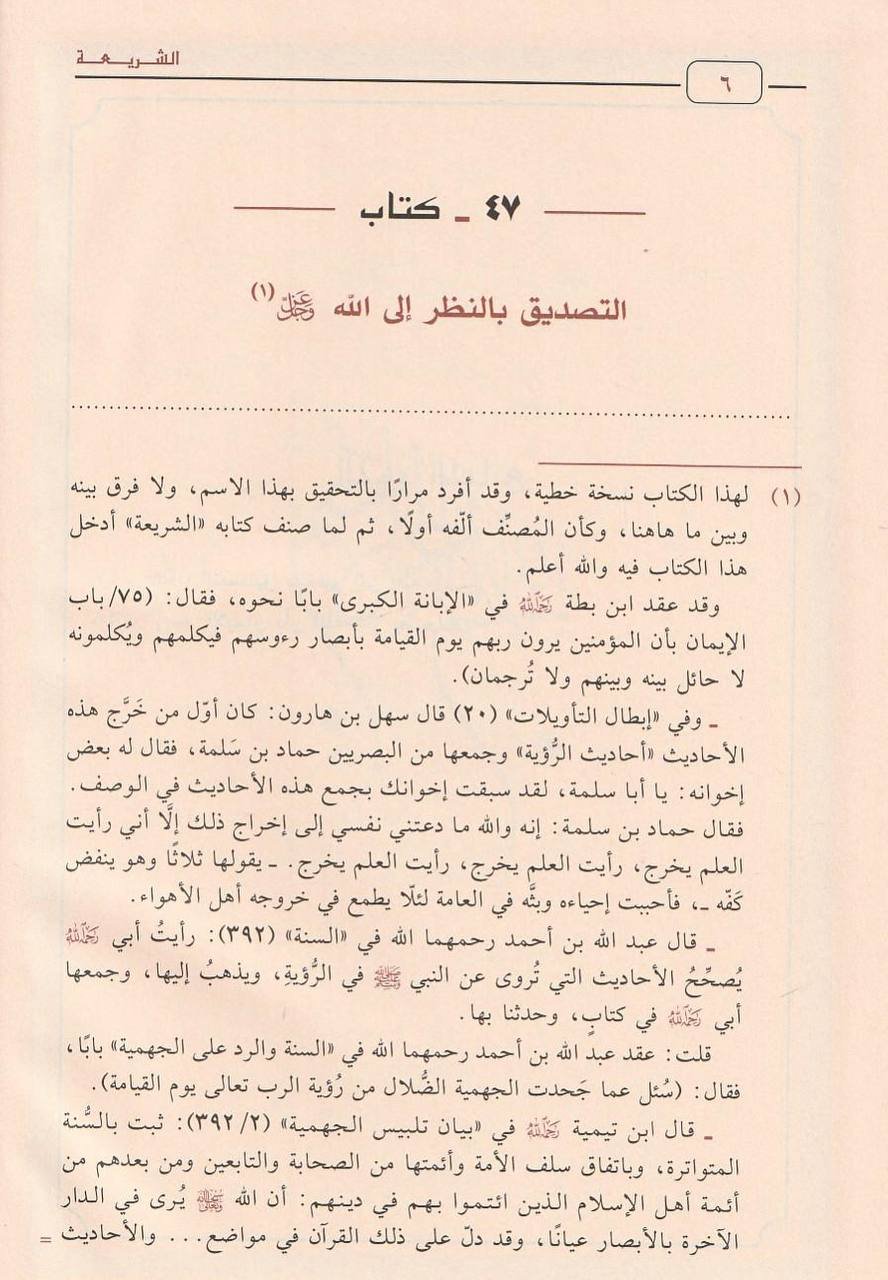 الشريعة
٦
٤٧ ـ كتاب
التصديق بالنظر إلى الله عَزَّ وَجَلَّ (١)
(١) لهذا الكتاب نسخة خطية، وقد أفرد مرارًا بالتحقيق بهذا الاسم، ولا فرق بينه
وبين ما هاهنا، وكأن المُصنِّف ألّفه أولًا، ثم لما صنف كتابه «الشريعة» أدخل
هذا الكتاب فيه والله أعلم.
وقد عقد ابن بطة رَحِمَهُ اللهُ في «الإبانة الكبرى» بابًا نحوه، فقال: (٧٥/باب
الإيمان بأن المؤمنين يرون ربهم يوم القيامة بأبصار رءوسهم فيكلمهم ويُكلمونه
لا حائل بينه وبينهم ولا تُرجمان).
ـ وفي «إبطال التأويلات» (٢٠) قال سهل بن هارون: كان أوّل من خَرَّج هذه
الأحاديث «أحاديث الرُّؤية» وجمعها من البصريين حماد بن سَلمة، فقال له بعض
إخوانه: يا أبا سلمة، لقد سبقت إخوانك بجمع هذه الأحاديث في الوصف.
فقال حماد بن سلمة: إنه والله ما دعتني نفسي إلى إخراج ذلك إلَّا أني رأيت
العلم يخرج، رأيت العلم يخرج، رأيت العلم يخرج. ـ يقولها ثلاثًا وهو ينفض
كَفّه ـ، فأحببت إحياءه وبثَّه في العامة لئلّا يطمع في خروجه أهل الأهواء.
ـ قال عبد الله بن أحمد رحمهما الله في «السنة» (٣٩٢): رأيتُ أبي رَحِمَهُ اللهُ
يُصحِّحُ الأحاديث التي تُروى عن النبي ﷺ في الرُّؤيةِ، ويذهبُ إليها، وجمعها
أبي رَحِمَهُ اللهُ في كتابٍ، وحدثنا بها.
قلت: عقد عبد الله بن أحمد رحمهما الله في «السنة والرد على الجهمية» بابًا،
فقال: (سُئل عما جَحدت الجهمية الضُّلال من رُؤية الرب تعالى يوم القيامة).
ـ قال ابن تيمية رَحِمَهُ اللهُ في «بيان تلبيس الجهمية» (٣٩٢/٢): ثبت بالسُّنة
المتواترة، وباتفاق سلف الأمة وأئمتها من الصحابة والتابعين ومن بعدهم من
أئمة أهل الإسلام الذين ائتموا بهم في دينهم: أن الله يُرى في الدار
الآخرة بالأبصار عيانًا، وقد دلّ على ذلك القرآن في مواضع... والأحاديث =